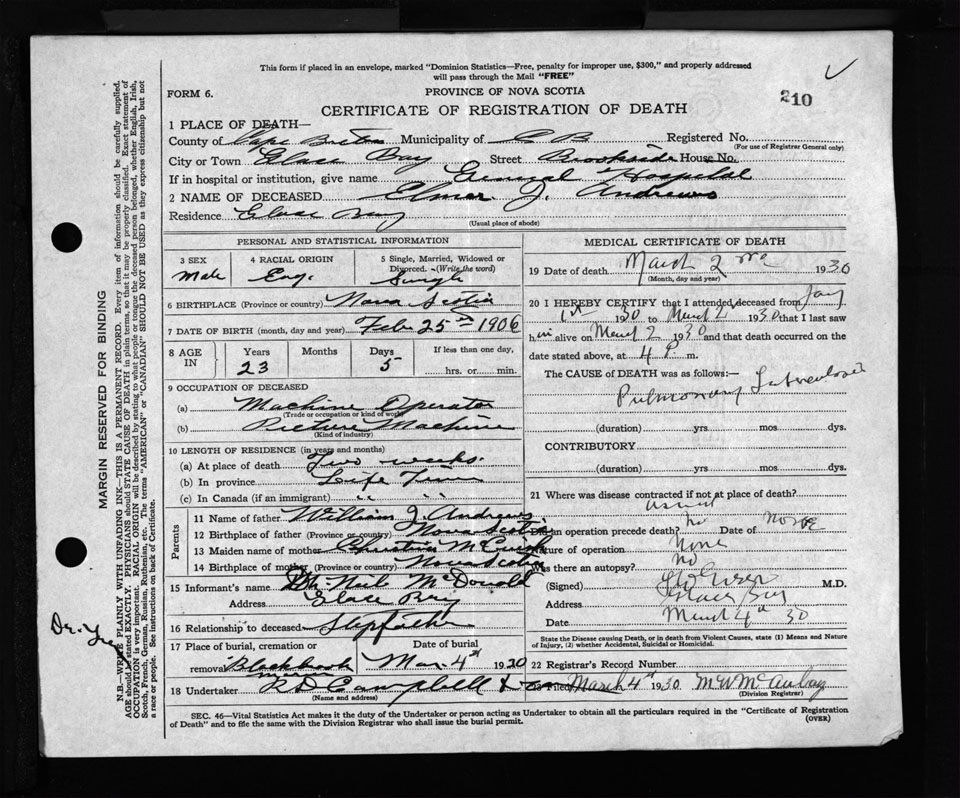 This form if placed in an envelope, marked "Dominion Statistics—Free, penalty for improper use, $300," and properly addressed
will pass through the Mail "FREE"
FORM 6.
PROVINCE OF NOVA SCOTIA
210
CERTIFICATE OF REGISTRATION OF DEATH
1 PLACE OF DEATH—
County of Cape Breton Municipality of C B Registered No.
(For use of Registrar General only)
City or Town Glace Bay Street Brookside House No.
If in hospital or institution, give name General Hospital
2 NAME OF DECEASED Elmer J. Andrews
Residence Glace Bay
(Usual place of abode)
PERSONAL AND STATISTICAL INFORMATION
3 SEX 4 RACIAL ORIGIN 5 Single, Married, Widowed or
Divorced. (Write the word)
Male Eng. Single
6 BIRTHPLACE (Province or country) Nova Scotia
7 DATE OF BIRTH (month, day and year) Feb 25 1906
8 AGE IN Years Months Days If less than one day,
23 5 hrs. or min.
9 OCCUPATION OF DECEASED
(a) Machine Operator
(Trade or occupation or kind of work)
(b) Picture Machine
(Kind of industry)
10 LENGTH OF RESIDENCE (in years and months)
(a) At place of death Two weeks.
(b) In province Life Time
(c) In Canada (if an immigrant) " "
Parents
11 Name of father William J. Andrews
12 Birthplace of father (Province or country) Nova Scotia
13 Maiden name of mother Christia
14 Birthplace of mother (Province or country) Nova Scotia
15 Informant's name Neil McDonald
Address Glace Bay
16 Relationship to deceased Stepfather
17 Place of burial, cremation or Date of burial
removal Mar. 4th 1920
18 Undertaker Campbell
(Name and address)
MEDICAL CERTIFICATE OF DEATH
19 Date of death March 2nd 1930
(Month, day and year)
20 I HEREBY CERTIFY that I attended deceased from Jany
1st 1930 to March 2 1930 that I last saw
him alive on March 2 1930 and that death occurred on the
date stated above, at 4 P. m.
The CAUSE of DEATH was as follows:—
Pulmonary Tuberculosis
(duration) yrs mos dys.
CONTRIBUTORY
(duration) yrs mos dys.
21 Where was disease contracted if not at place of death?
Did an operation precede death? no Date of none
Nature of operation None
Was there an autopsy? No
(Signed) M.D.
Address Glace Bay
Date March 4th 30
State the Disease causing Death, or in death from Violent Causes, state (1) Means and Nature
of Injury, (2) whether Accidental, Suicidal or Homicidal.
22 Registrar's Record Number
23 Filed March 4th 1930 M W
(Division Registrar)
SEC. 46—Vital Statistics Act makes it the duty of the Undertaker or person acting as Undertaker to obtain all the particulars required in the "Certificate of Registration
of Death" and to file the same with the Division Registrar who shall issue the burial permit.
(OVER)
MARGIN RESERVED FOR BINDING
N.B.—WRITE PLAINLY WITH UNFADING INK—THIS IS A PERMANENT RECORD. Every item of information should be carefully supplied.
AGE should be stated EXACTLY. PHYSICIANS should STATE CAUSE OF DEATH in plain terms, so that it may be properly classified. Exact statement of
OCCUPATION is very important. RACIAL ORIGIN will be described by stating to what people or tongue the deceased person belonged, whether English, Irish,
Scotch, French, German, Russian, Ruthenian, etc. The terms "AMERICAN" or "CANADIAN" SHOULD NOT BE USED as they express citizenship but not
a race or people. See instructions on back of Certificate.
Dr.